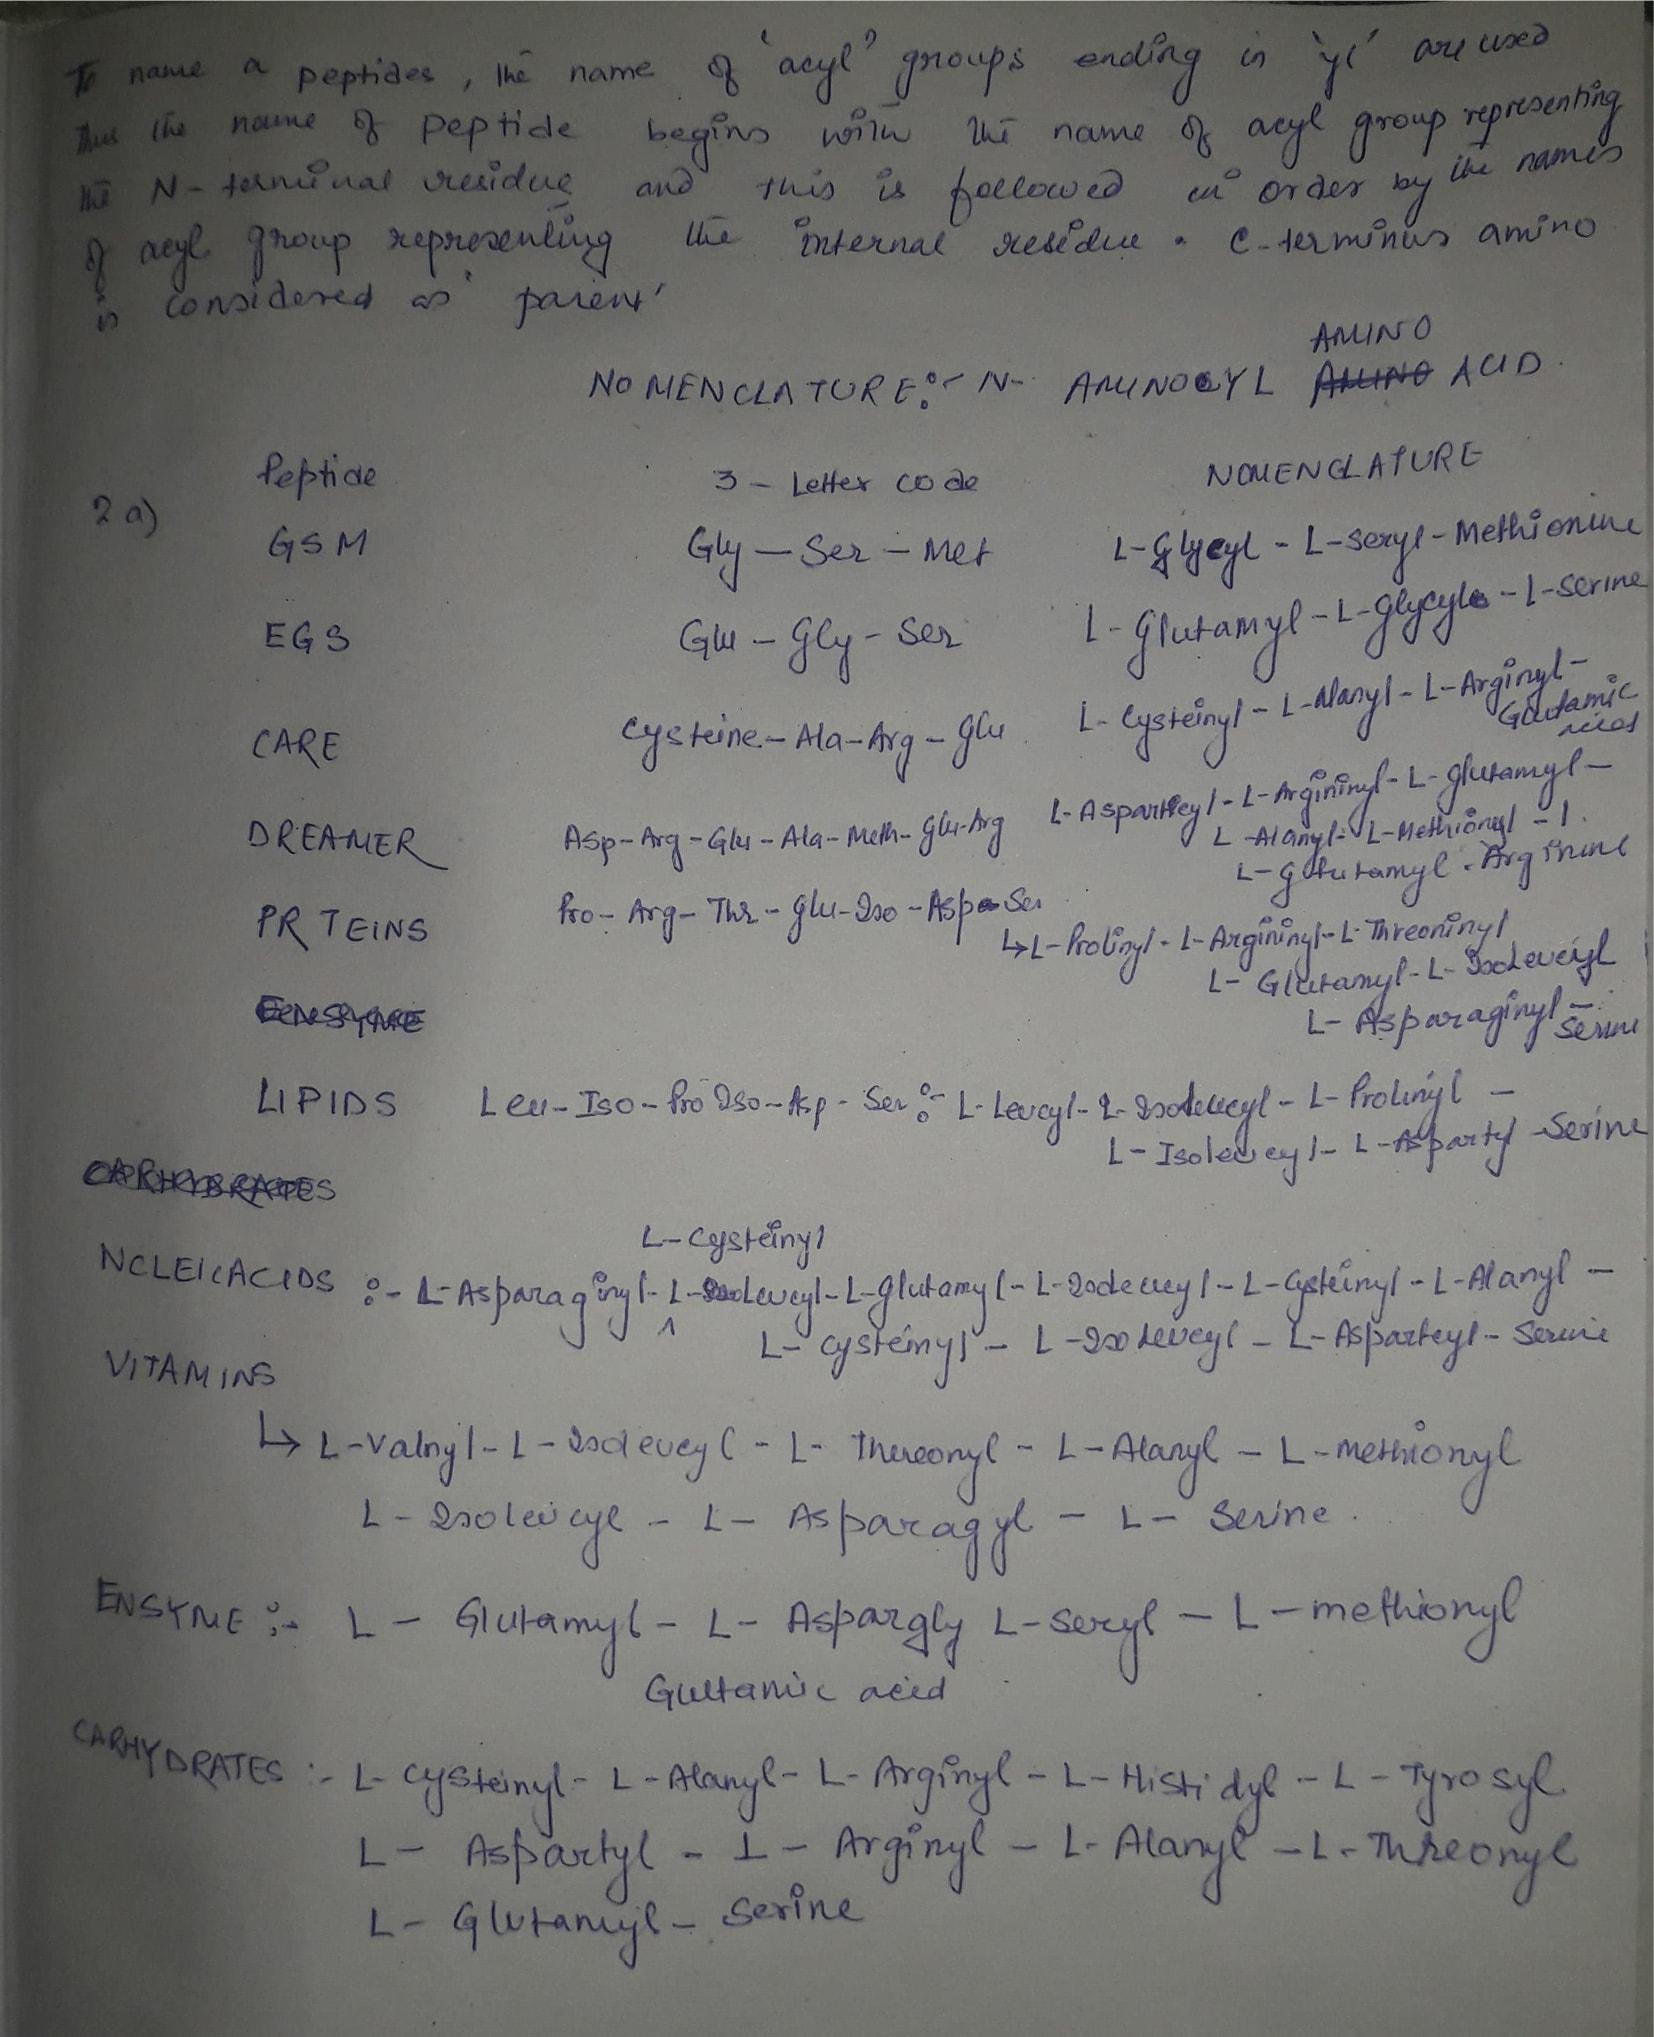 To name a peptides, the name of 'acyl' groups ending in 'yl' are used
Thus the name of peptide begins with the name of acyl group representing
the N-terminal residue and this is followed in order by the names
of acyl group representing the internal residue. C-terminus amino
is considered as 'parent'
NOMENCLATURE:- N- AMINOCYL AMINO ACID.
Peptide 3-Letter code NOMENCLATURE
2 a)
GSM Gly-Ser-Met L-Glycyl-L-seryl-Methionine
EGS Glu-Gly-Ser L-Glutamyl-L-Glycyl-L-serine
CARE Cysteine-Ala-Arg-Glu L-Cysteinyl-L-alanyl-L-Arginyl-
Glutamic
acid
DREAMER Asp-Arg-Glu-Ala-Meth-Glu-Arg L-Asparticyl-L-Argininyl-L-glutamyl-
L-Alanyl-L-Methionyl-L
L-glutamyl-Arginine
PRTEINS Pro-Arg-Thr-Glu-Iso-Asp-Ser
↳L-Prolinyl-L-Argininyl-L-Threoninyl
L-Glutamyl-L-Isoleucyl
L-Asparaginyl-
Serine
ENSYME
LIPIDS Leu-Iso-Pro Iso-Asp-Ser:- L-Leucyl-L-Isoleucyl-L-Prolinyl-
L-Isoleucyl-L-Aspartyl-Serine
CARHYDRATES
L-Cysteinyl
NCLEICACIDS :- L-Asparaginyl-L-Isoleucyl-L-glutamyl-L-Isoleucyl-L-Cysteinyl-L-Alanyl-
L-cysteinyl-L-Isoleucyl-L-Asparteyl-Serine
VITAMINS
↳ L-Valnyl-L-Isoleucyl-L-Threonyl-L-Alanyl-L-methionyl
L-Isoleucyl-L-Asparagyl-L-Serine.
ENSYME :- L-Glutamyl-L-Aspargly L-seryl-L-methionyl
Gultamic acid
CARHYDRATES :- L-Cysteinyl-L-Alanyl-L-Arginyl-L-Histidyl-L-Tyrosyl
L-Aspartyl-L-Arginyl-L-Alanyl-L-Threonyl
L-Glutamyl-Serine